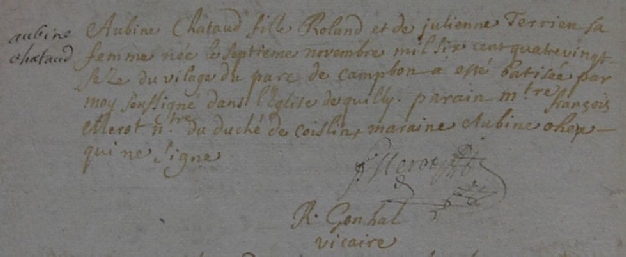 aubine
chataud
Aubine Chataud fille Roland et de julienne Terrien sa
femme née le septieme novembre mil six cent quatre vingt
seze du vilage du parc de campbon a esté batisée par
moy soussigné dans l'Eglise de quilly. parain m.tre françois
Merot n.tre du duché de coislin, maraine Aubine
qui ne signe
f Merot
R. Gonhal
vicaire